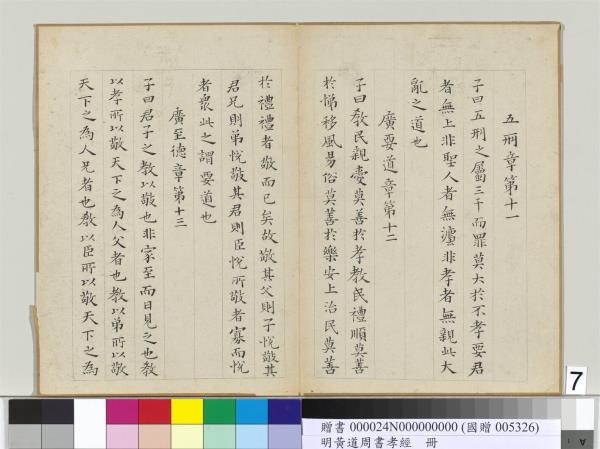 五刑章第十一
子曰五刑之屬三千而罪莫大於不孝要君
者無上非聖人者無灋非孝者無親此大
亂之道也
廣要道章第十二
子曰教民親愛莫善於孝教民禮順莫善
於悌移風易俗莫善於樂安上治民莫善
於禮禮者敬而已矣故敬其父則子悅敬其
兄則弟悅敬其君則臣悅所敬者寡而悅
者衆此之謂要道也
廣至德章第十三
子曰君子之教以敬也非家至而日見之也教
以孝所以敬天下之為人父者也教以弟所以敬
天下之為人兄者也教以臣所以敬天下之為
7
贈書 000024N000000000 (國贈 005326)
明黃道周書孝經 冊
A